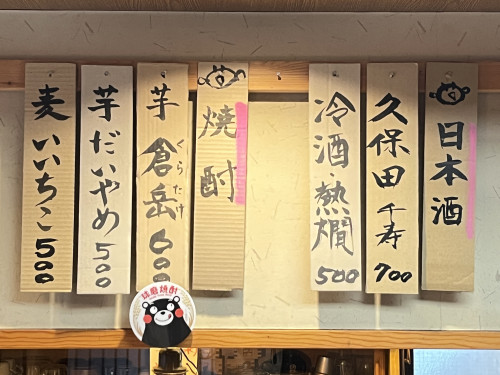 日本酒
久保田 千寿 700
冷酒・熱燗 500
焼酎
芋 倉岳 600
くらたけ
芋 だいやめ 500
麦 いいちこ 500
球磨焼酎